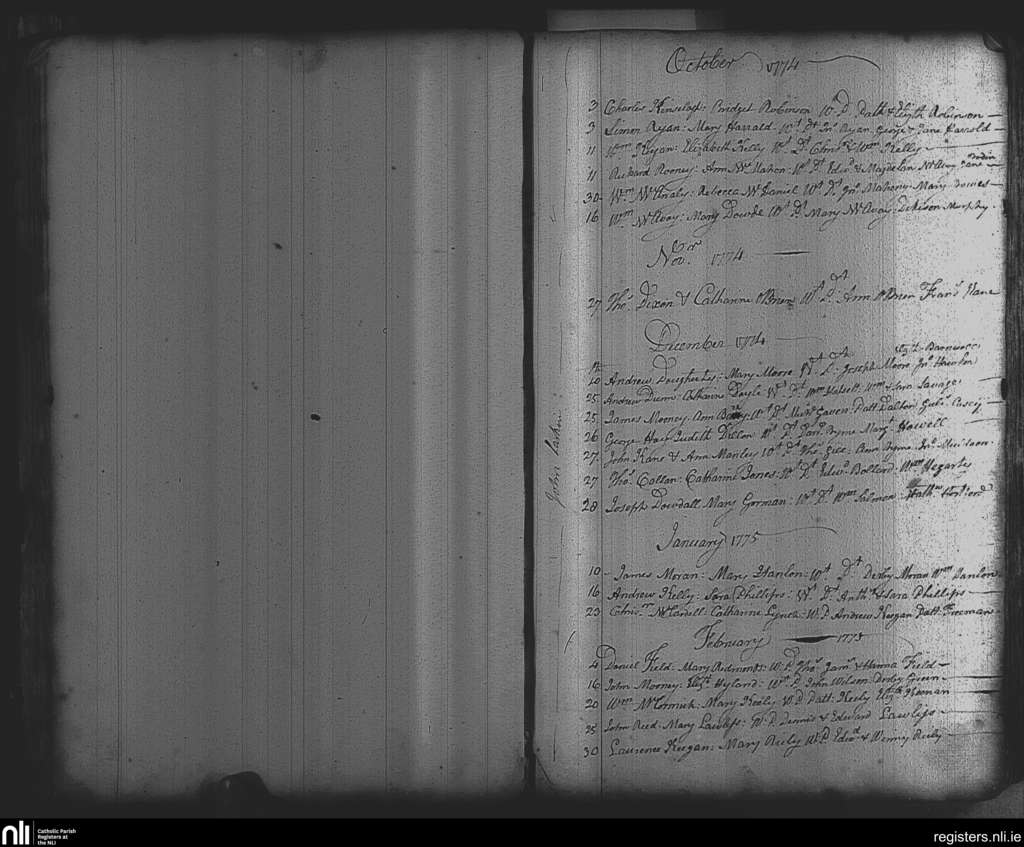 October 1774
3 Charles Kinselagh: Bridget Robinson Wt D Patt & Elizth Robinson
3 Simon Ryan: Mary Harrald. Wt Dt Jno Ryan George & Jane Harrold
11 Wm Keegan: Elizabeth Kelly Wt Dt Christr & Wm Kelly
11 Richard Rooney: Ann McMahon: Wt Dt Edwd & Magdelan McAvoy Jane
30 Wm Rebecca McDaniel Wt Dt Jno Mahony: Mary
16 Wm McAvoy: Mary Dowde Wt Dt Mary McAvoy: Dickison Murphy
Novr 1774
27 Thos Dixon & Catharine OBrien Wt Dt Ann OBrien Frans Kane
December 1774
Barnwell
10 Andrew Dougherty: Mary Moore Wt Dt Joseph Moore Jno
25 Andrew Dunn: Catharine Doyle Wt Dt Wm Halsell: Wm & Sara Savage
25 James Mooney: Ann Wt Dt Gaven: Patt Dalton Casey
26 George Judith Dillon Wt Dt Pryme Margt Howell
27 John Kane & Ann Manley Wt Dt Thos Ann Pryme Jno
27 Thos Callan: Catharine Jones: Wt Dt Edwd Bollard: Wm Hegarty
28 Joseph Dowdall Mary Gorman: Wt Dt Wm Salmon
John Larkin
January 1775
10 James Moran: Mary Hanlon: Wt Dt Derby Moran Wm Hanlon
16 Andrew Kelly: Sara Phillips: Wt Dt Anth & Sara Phillips
23 Christr McCardell: Catharine Lynch: W D Andrew Keegan Patt: Freeman
February 1775
4 Daniel Field: Mary Redmond: W D Thos Jams & Hanna Field
16 John Mooney: Elizt Hyland: Wt D John Wilson Derby Green
20 Wm McCormick: Mary Keely W D Patt: Keely Elizth Keenan
25 John Reed: Mary Lawless: W D Dennis & Edward Lawless
30 Laurence Keegan: Mary Reily W D Edwd & Winny Reily
nli
Catholic Parish
Registers at
the NLI
registers.nli.ie